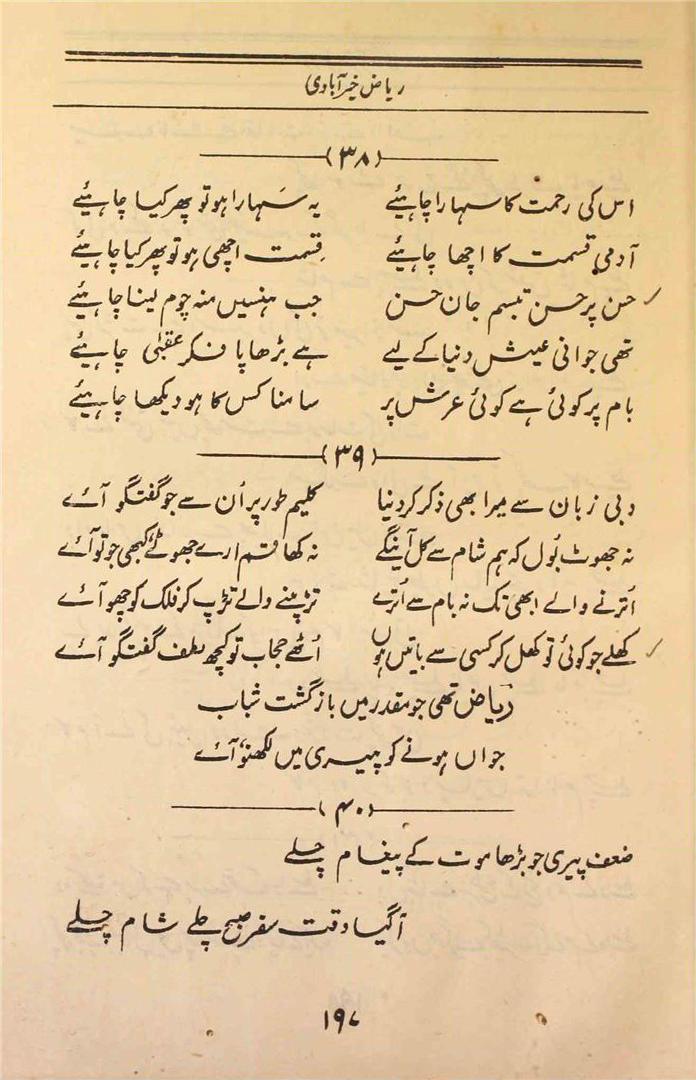 ریاض خیرآبادی
(۳۸)
اس کی رحمت کا سہارا چاہیئے یہ سَہارا ہو تو پھر کیا چاہیئے
آدمی قسمت کا اچھا چاہیئے قِسمت اچھی ہو تو پھر کیا چاہیئے
حن پر حسن تبسم جان حسن جب ہنسیں منہ چوم لینا چاہیئے
تھی جوانی عیش دنیا کے لیے ہے بڑھاپا فکر عقبٰی چاہیئے
بام پر کوئی ہے کوئی عرش پر سامنا کس کا ہو دیکھا چاہیئے
(۳۹)
دبی زبان سے میرا بھی ذکر کر دنیا کلیم طور پر اُن سے جو گفتگو آئے
نہ جھوٹ بُول کہ ہم شام سے کل آینگے نہ کھا قسم ارے جھوٹے کبھی جو تو آئے
اُترنے والے ابھی تک نہ بام سے اُترے تڑپنے والے تڑپ کر فلک کو چھو آئے
کھلے جو کوئی تو کھل کر کسی سے باتیں ہوں اُٹھے حجاب تو کچھ لطف گفتگو آئے
ریاض تھی جو مقدر میں بازگشت شباب
جواں ہونے کو پیری میں لکھنؤ آئے
(۴۰)
ضعف پیری جو بڑھا موت کے پیغام چلے
آگیا وقت سفر صبح چلے شام چلے
۱۹۷